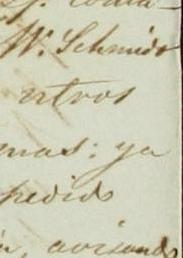 W. Schmidt
ntros
mas: ya
pedido
avisando